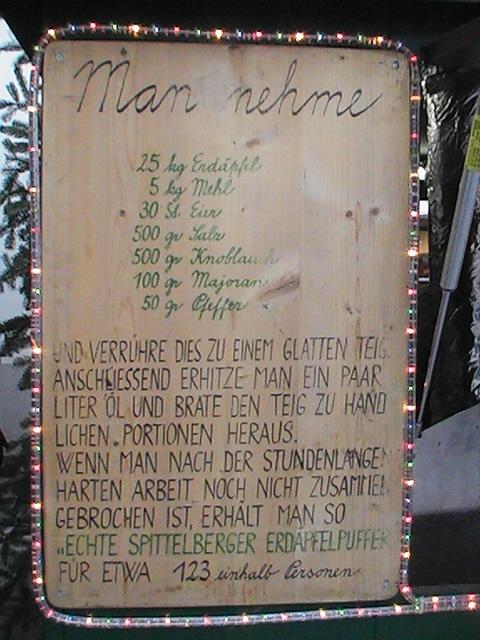 Man nehme
25 kg Erdäpfel
5 kg Mehl
30 St. Eier
500 gr Salz
500 gr Knoblauch
100 gr Majoran
50 gr Pfeffer
UND VERRÜHRE DIES ZU EINEM GLATTEN TEIG.
ANSCHLIESSEND ERHITZE MAN EIN PAAR
LITER ÖL UND BRATE DEN TEIG ZU HAND
LICHEN PORTIONEN HERAUS.
WENN MAN NACH DER STUNDENLANGEN
HARTEN ARBEIT NOCH NICHT ZUSAMMEN
GEBROCHEN IST, ERHÄLT MAN SO
„ECHTE SPITTELBERGER ERDÄPFELPUFFER
FÜR ETWA 123 einhalb Personen